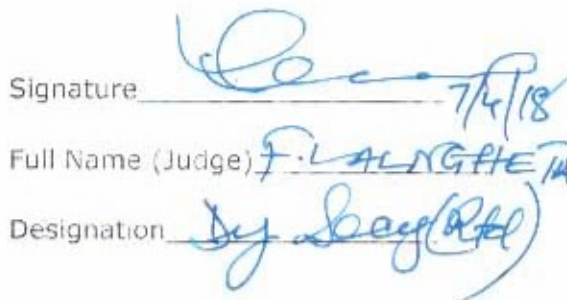 Signature
7/4/18
Full Name (Judge) F. LALNGHETA
Designation Dy Secy (Rtd)